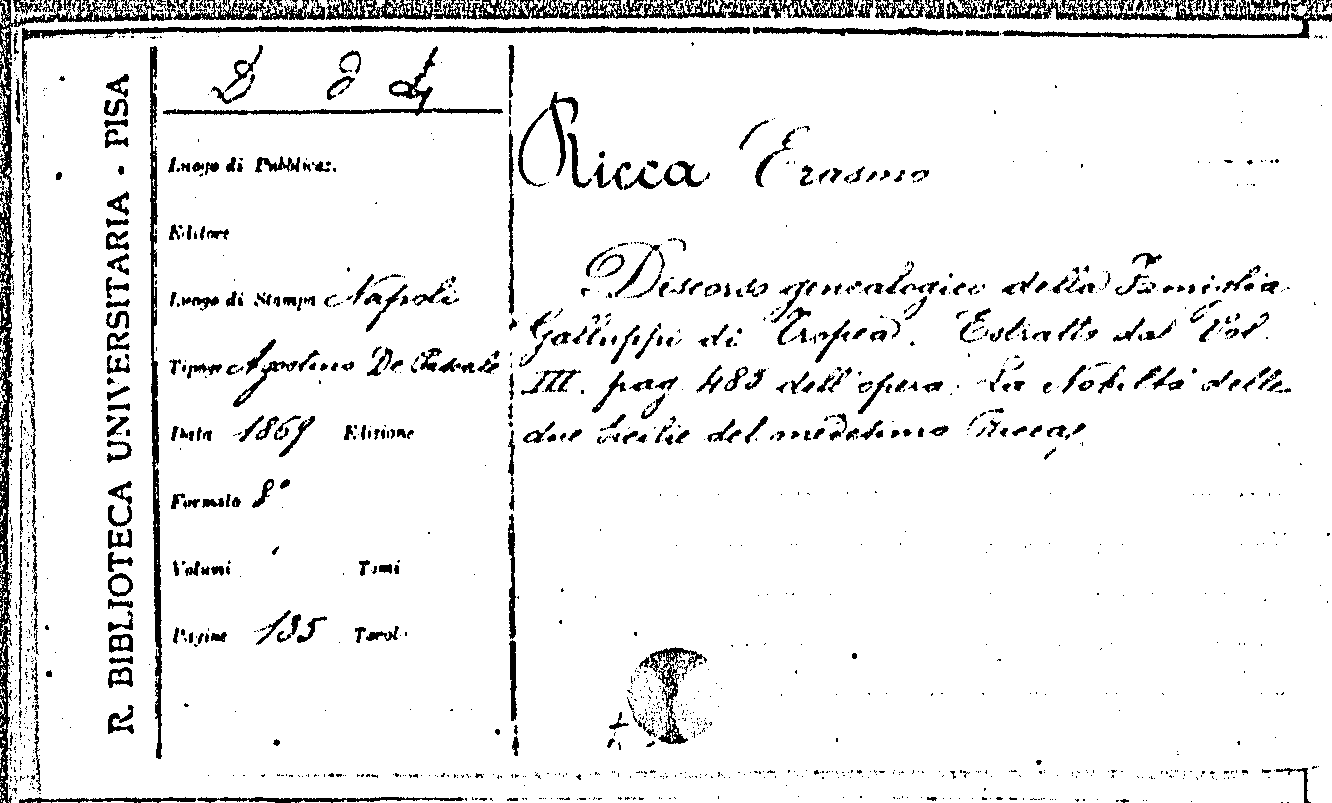 R. BIBLIOTECA UNIVERSITARIA - PISA
D d 4
Luogo di Pubblicaz.
Editore
Luogo di Stampa Napoli
Tipog. Agostino De Pascale
Data 1869 Edizione
Formato 8°
Volumi Tomi
Pagine 135 Tavole
Ricca Erasmo
Discorso genealogico della Famiglia
Galluppi di Tropea. Estratto dal Vol.
III. pag 485 dell'opera. La Nobiltà delle
due Sicilie del medesimo Ricca